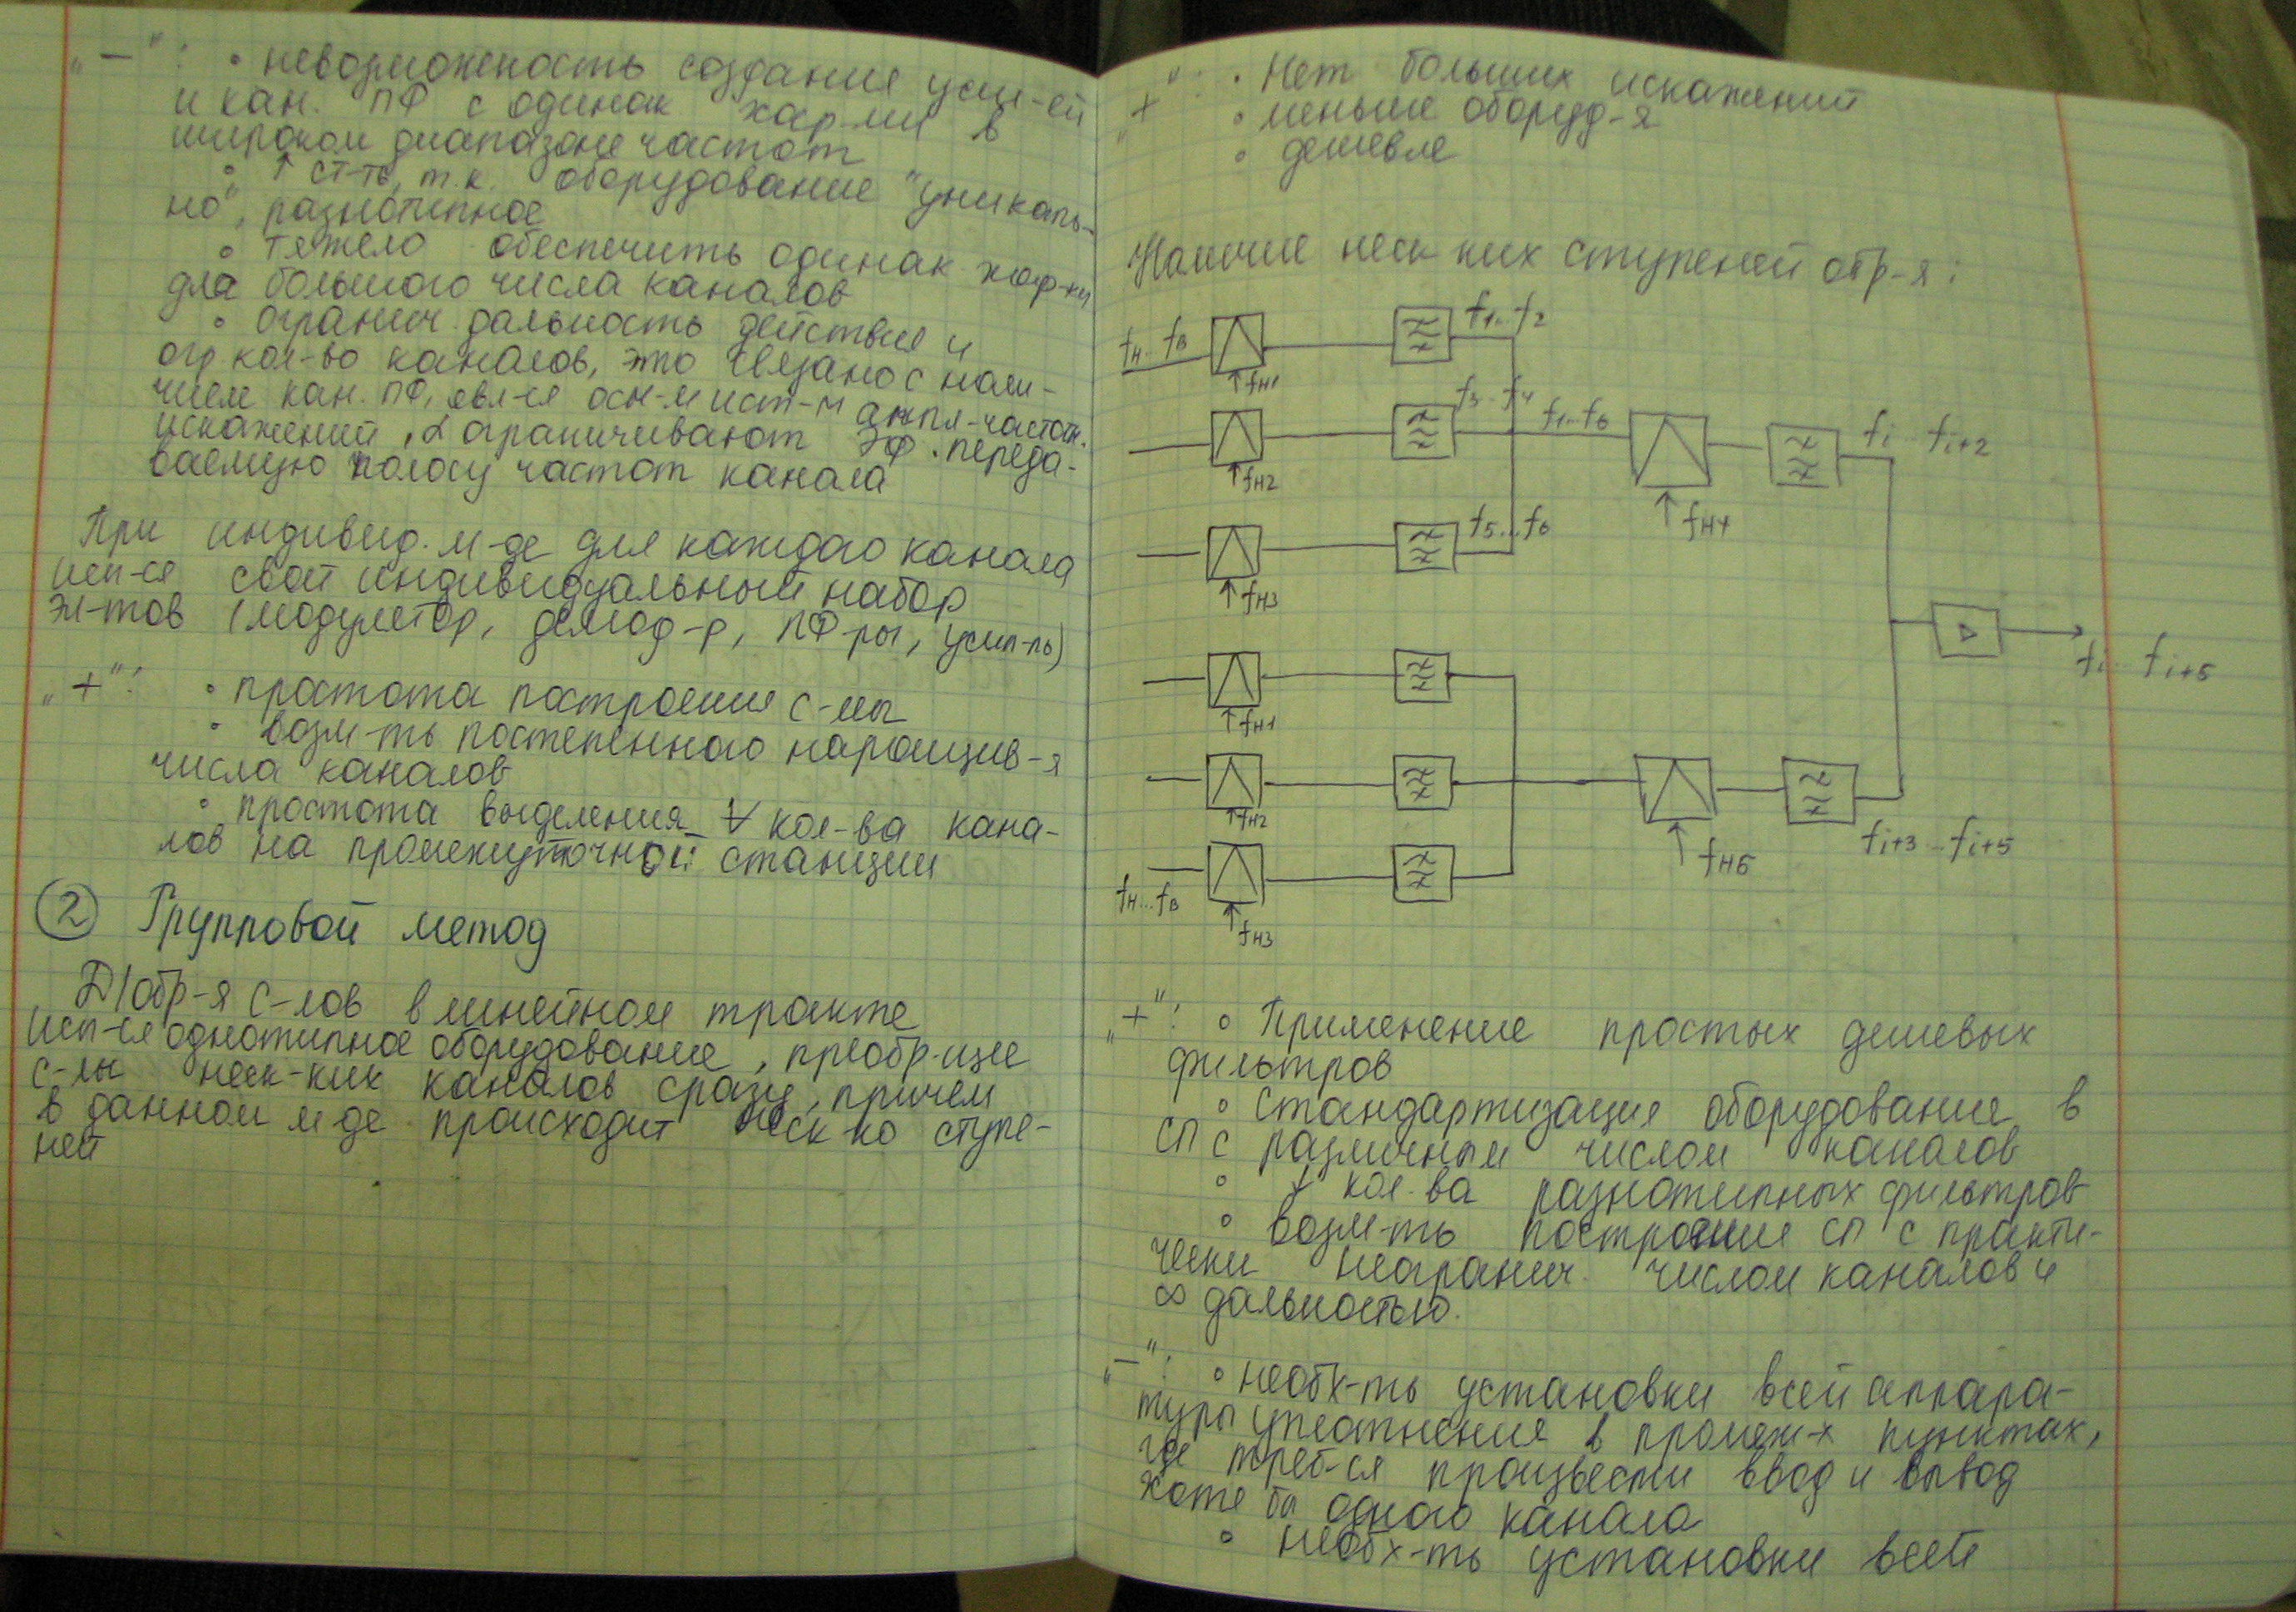 „—": • невозможность создания усил-ей
и кан. ПФ с одинак хар-ми в
широком диапазоне частот
• ↑ ст-ть, т.к. оборудование "уникаль-
но", разнотипное
• тяжело обеспечить одинак хар-ки
для большого числа каналов
• огранич. дальность действия и
огр кол-во каналов, это связано с нали-
чием кан. ПФ, явл-ся осн-м ист-м ампл-частотн.
искажений, & ограничивают ЭФ. переда-
ваемую полосу частот канала
При индивид. м-де для каждого канала
исп-ся свой индивидуальный набор
эл-тов (модулятор, демод-р, ПФ-ры, усил-ль)
„+": • простота построения с-мы
• возм-ть постепенного наращив-я
числа каналов
• простота выделения ∀ кол-ва кана-
лов на промежуточной станции
② Групповой метод
Д/обр-я с-лов в линейном тракте
исп-ся однотипное оборудование, преобр-щее
с-лы неск-ких каналов сразу, причем
в данном м-де происходит неск-ко ступе-
ней
„+": • Нет больших искажений
• меньше оборуд-я
• дешевле
Наличие неск-ких ступеней обр-я:
f1..f2
fн..fв
fн1
f3..f4
f1..f6
fi..fi+2
fн2
fн4
f5...f6
fн3
fi...fi+5
fн1
fн2
fi+3...fi+5
fн5
fн...fв
fн3
„+": • Применение простых дешевых
фильтров
• стандартизация оборудование в
СП с различным числом каналов
• ↓ кол-ва разнотипных фильтров
• возм-ть построение СП с практи-
чески неогранич. числом каналов и
∞ дальностью.
„—": • необх-ть установки всей аппара-
туры уплотнения в промеж-х пунктах,
где треб-ся произвести ввод и вывод
хотя бы одного канала
• необх-ть установки всей